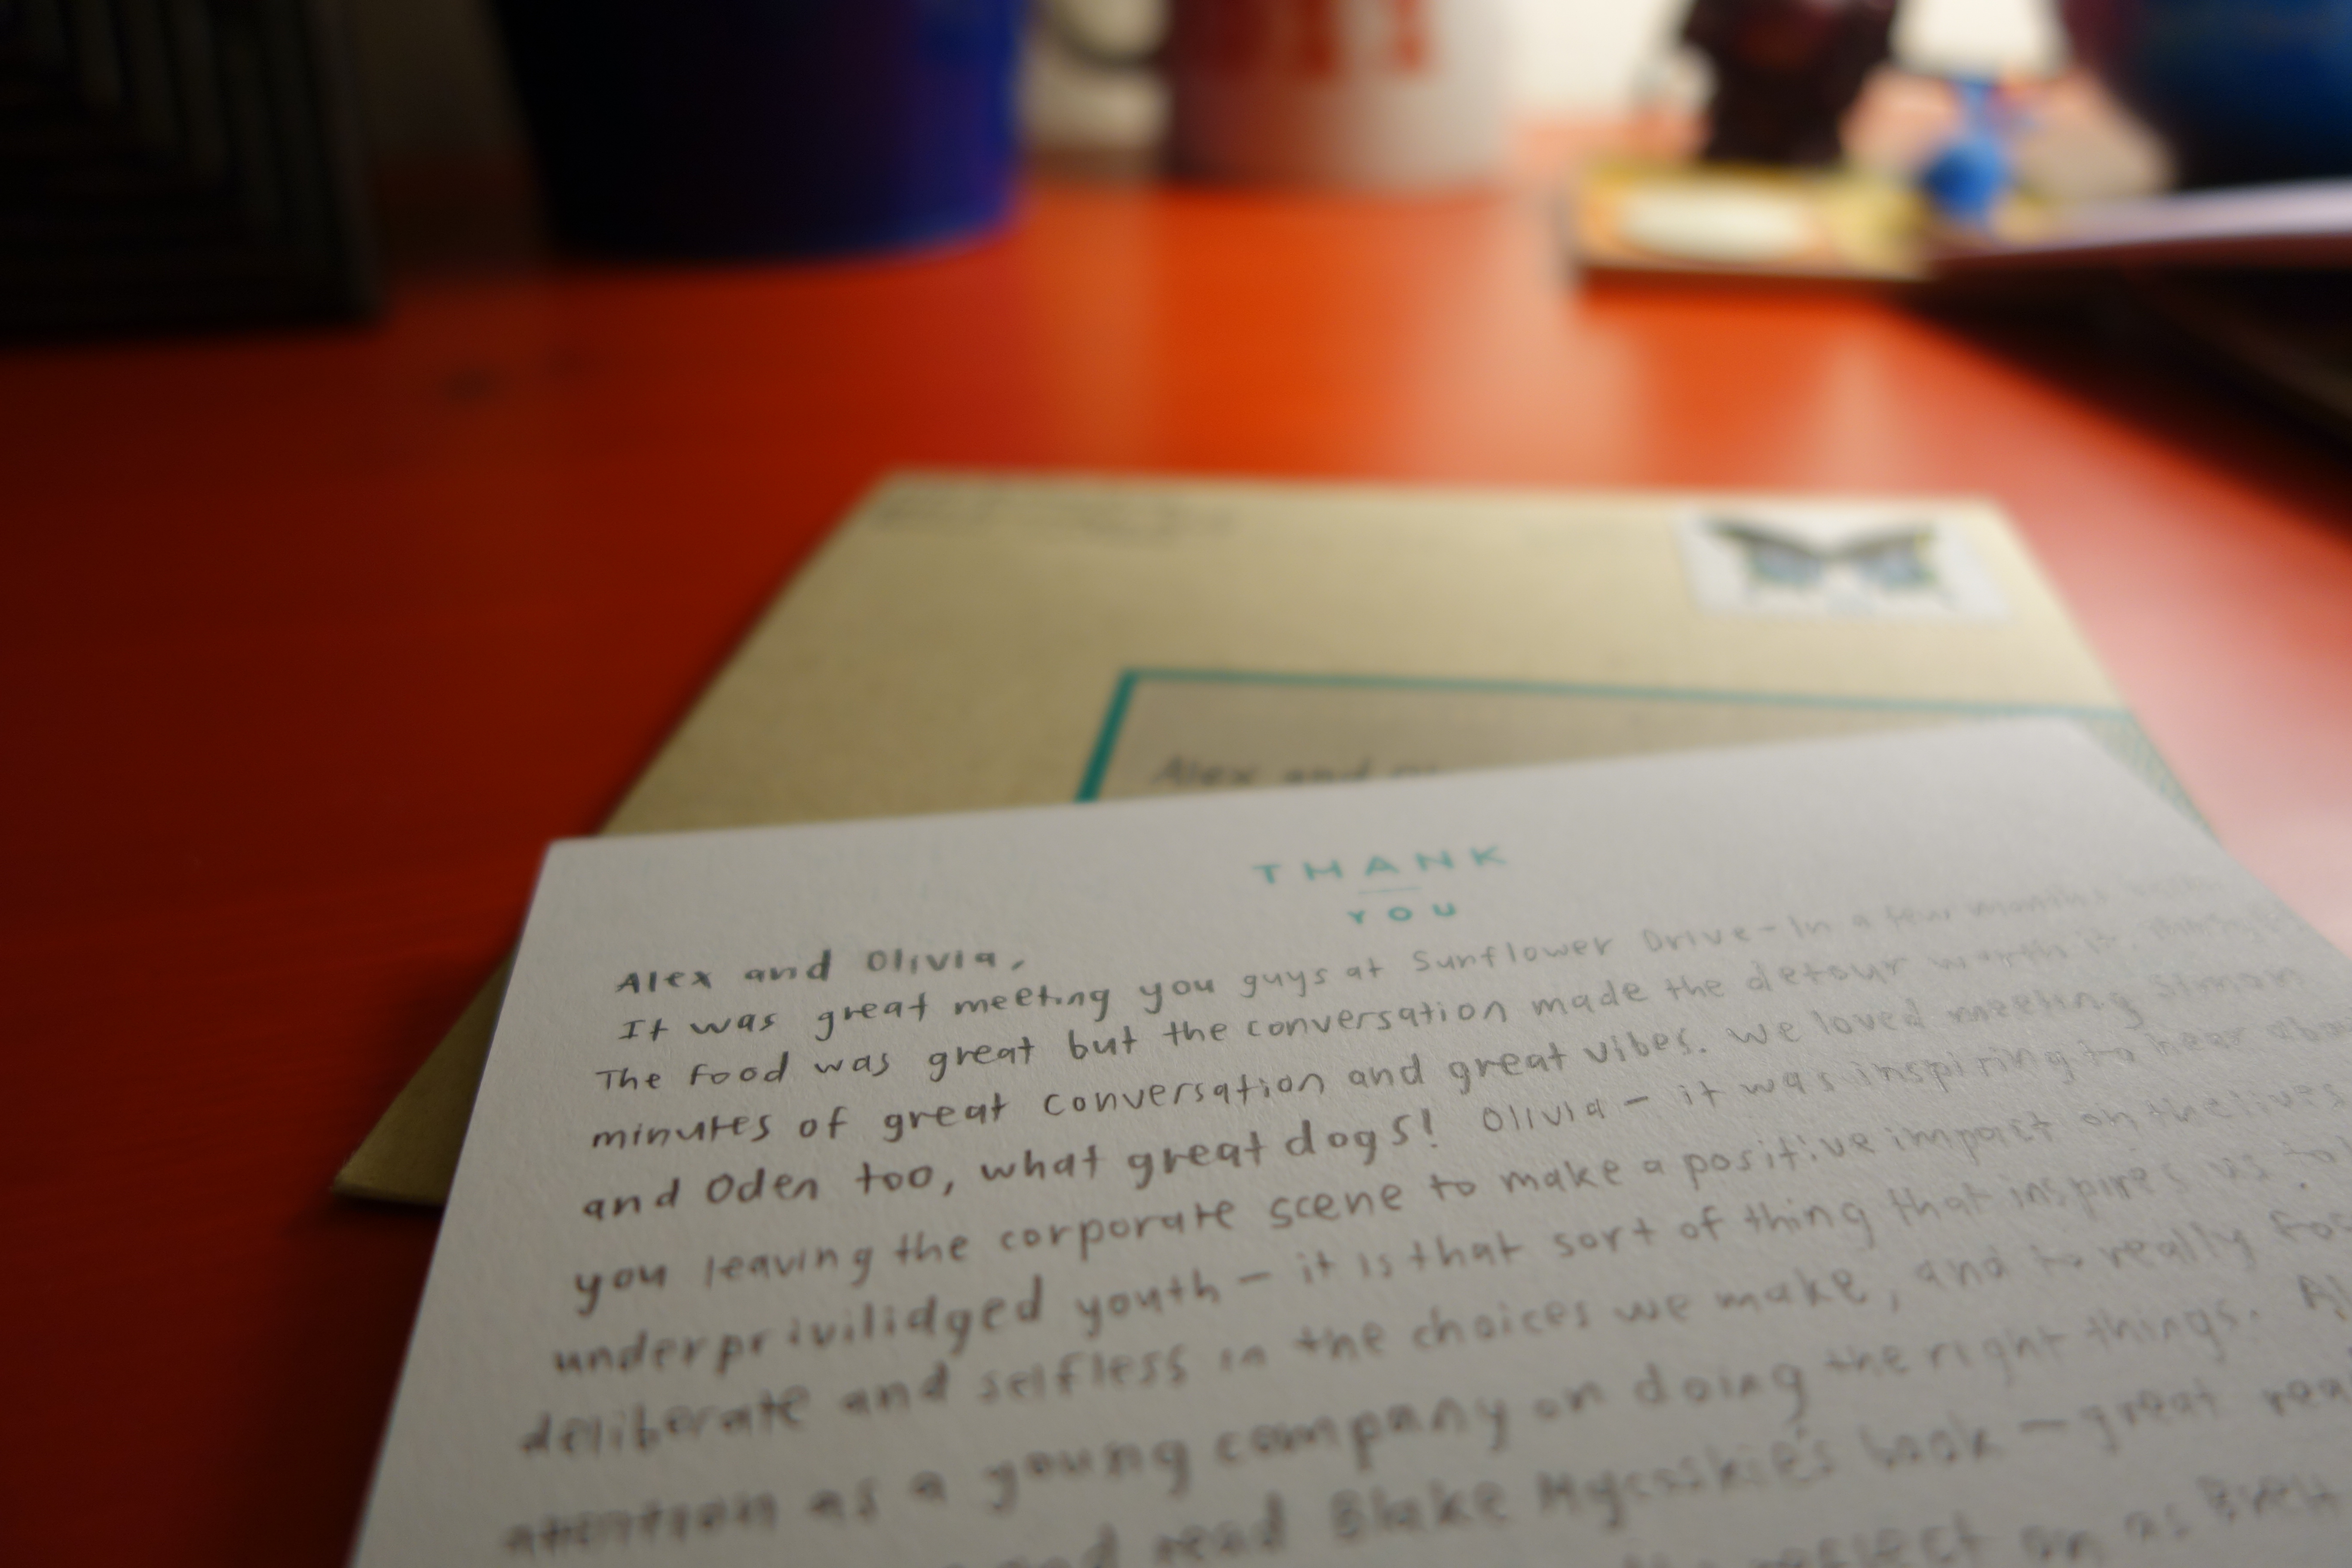 Alex and
THANK
YOU
Alex and Olivia,
It was great meeting you guys at Sunflower Drive - In a few months
The food was great but the conversation made the detour worth it,
minutes of great conversation and great vibes. We loved meeting Simon
and Oden too, what great dogs! Olivia - it was inspiring to hear
you leaving the corporate scene to make a positive impact on the lives
underprivilidged youth - it is that sort of thing that inspires us to
deliberate and selfless in the choices we make, and to really
attention as a young company on doing the right things.
and read Blake Mycoskie's book - great
reflect on as